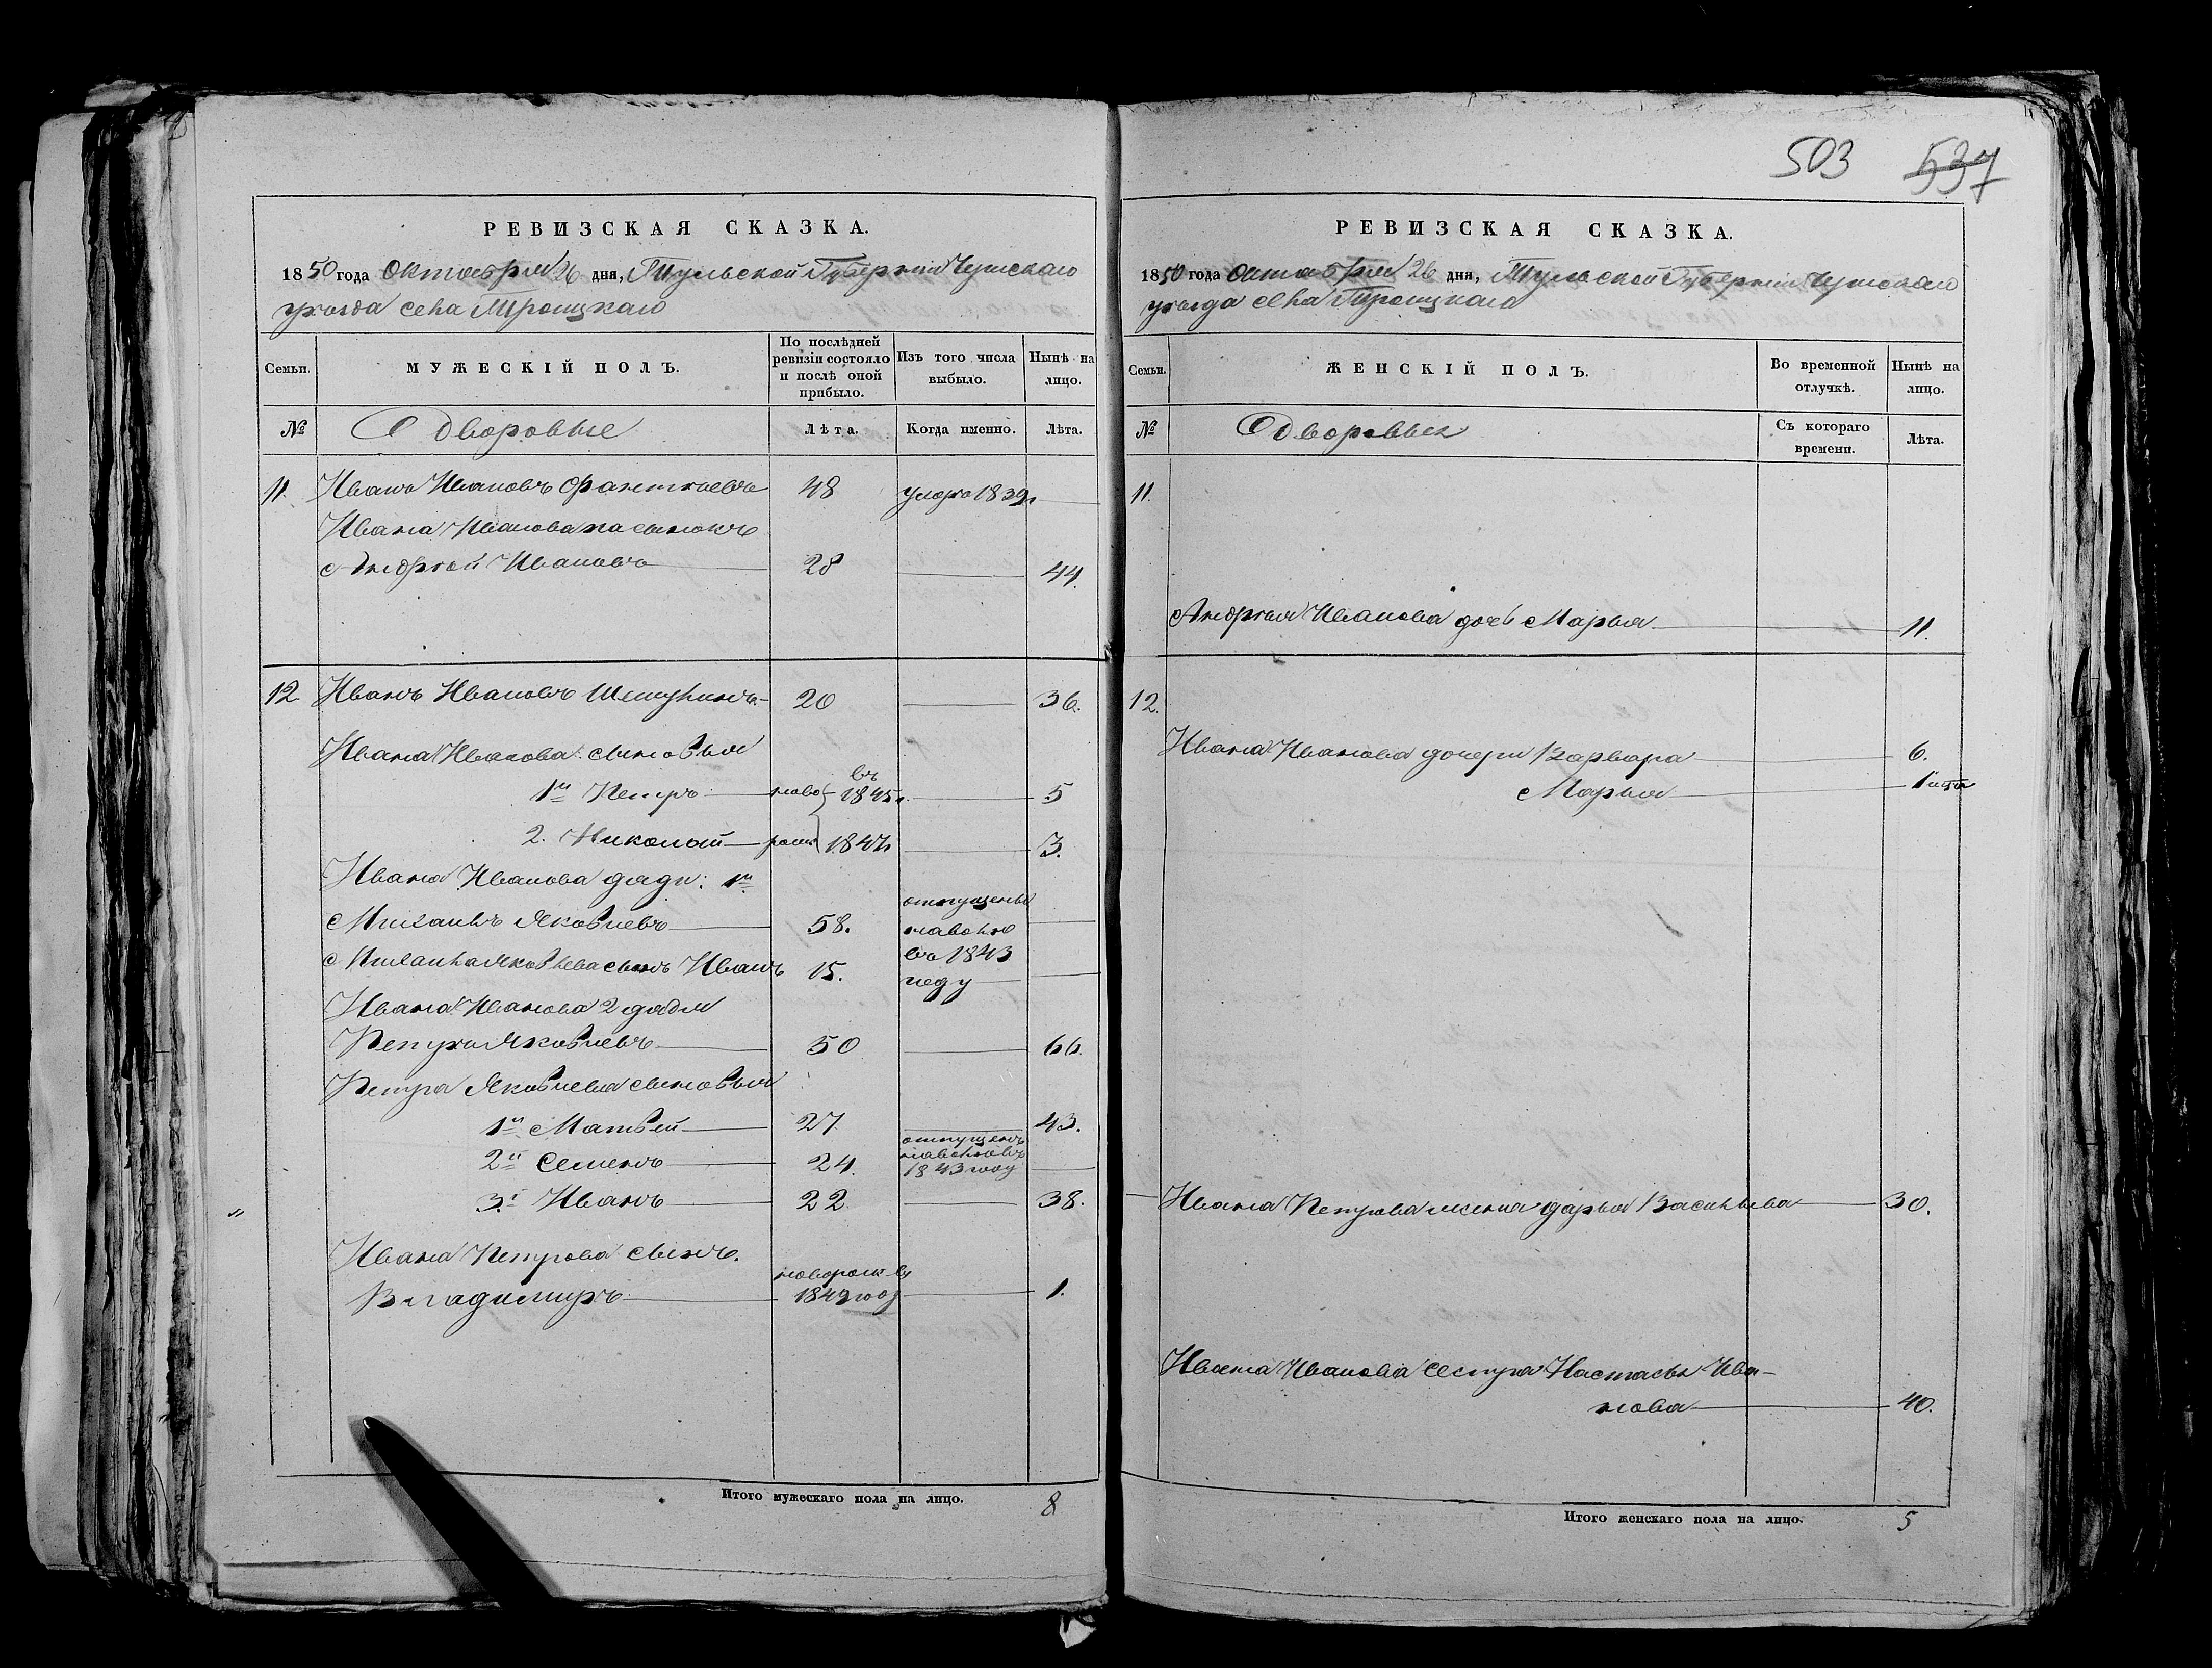 503 537
РЕВИЗСКАЯ СКАЗКА.
1850 года Октября 26 дня, Тульской Губерніи Чернскаго
уѣзда села Троицкаго
Семьи.
МУЖЕСКІЙ ПОЛЪ.
По послѣдней
ревизіи состояло
и послѣ оной
прибыло.
Изъ того числа
выбыло.
Нынѣ на
лицо.
№
Дворовые
Лѣта.
Когда именно.
Лѣта.
11. Иванъ Ивановъ 48 умре 1839г
Ивана Иванова пасынокъ
Андрей Ивановъ 28 44.
12 Иванъ Ивановъ 20 36.
Ивана Иванова сыновья
въ
1й Петръ ново 1845г. 5
2. Николай рожд 1847г 3.
Ивана Иванова дяди: 1й
отпущены
Михаилъ Яковлевъ 58. наволю
въ 1843
Михаила Яковлева сынъ Иванъ 15.
году
Ивана Иванова 2 дядя
Петръ Яковлевъ 50 66.
Петра Яковлева сыновья
1й Матвей 27. 43.
отпущенъ
наволю въ
2й Семенъ 24. 1843 году
3й Иванъ 22 38.
Ивана Петрова сынъ.
новорож въ
Владимиръ 1849 году 1.
Итого мужескаго пола на лицо. 8
РЕВИЗСКАЯ СКАЗКА.
1850 года Октября 26 дня, Тульской Губерніи Чернскаго
уѣзда села Троицкаго
Семьи.
ЖЕНСКІЙ ПОЛЪ.
Во временной
отлучкѣ.
Нынѣ на
лицо.
№
Дворовыя
Съ котораго
времени.
Лѣта.
11.
Андрея Иванова дочь Марья 11.
12.
Ивана Иванова дочери Варвара 6.
Марья 1
Ивана Петрова жена Дарья Васильева 30.
Ивана Иванова сестра Настасья Ива-
нова 40.
Итого женскаго пола на лицо. 5